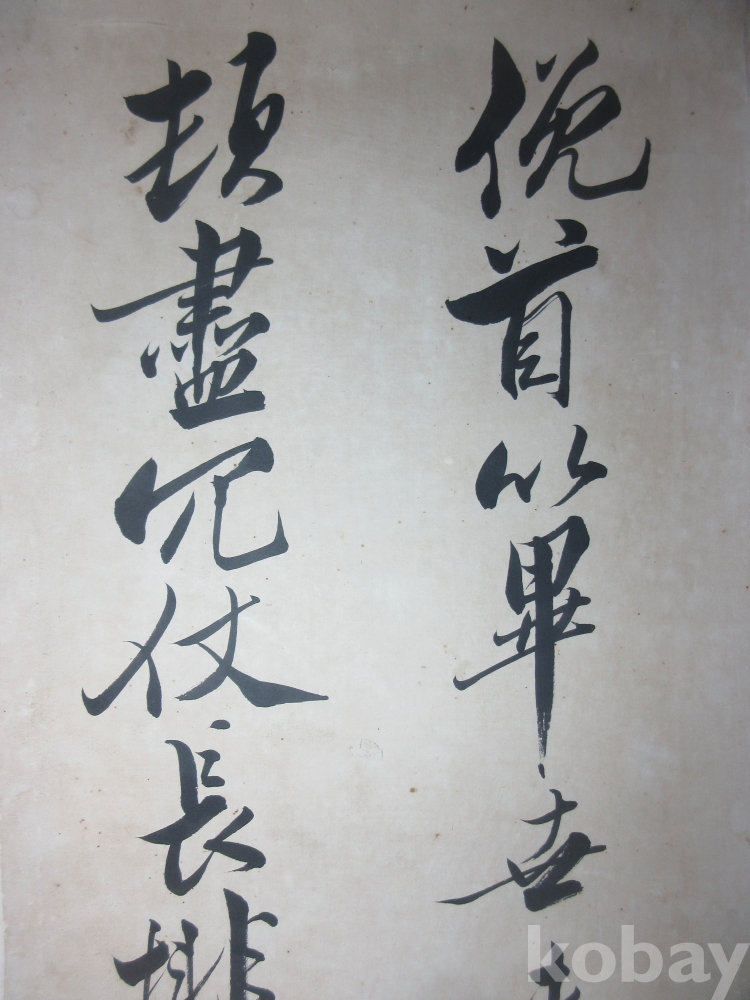 俛首以畢世
頓盡冗仗長排
kobay